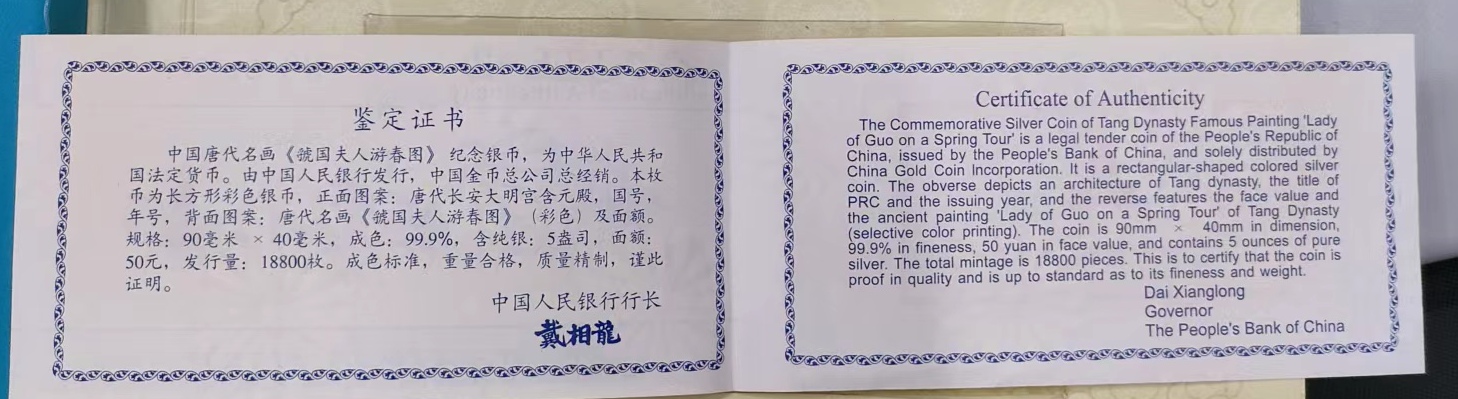 鉴定证书
中国唐代名画《虢国夫人游春图》纪念银币，为中华人民共和
国法定货币。由中国人民银行发行，中国金币总公司总经销。本枚
币为长方形彩色银币，正面图案：唐代长安大明宫含元殿，国号，
年号，背面图案：唐代名画《虢国夫人游春图》（彩色）及面额。
规格：90毫米 × 40毫米，成色：99.9%，含纯银：5盎司，面额：
50元，发行量：18800枚。成色标准，重量合格，质量精制，谨此
证明。
中国人民银行行长
戴相龍
Certificate of Authenticity
The Commemorative Silver Coin of Tang Dynasty Famous Painting 'Lady
of Guo on a Spring Tour' is a legal tender coin of the People's Republic of
China, issued by the People's Bank of China, and solely distributed by
China Gold Coin Incorporation. It is a rectangular-shaped colored silver
coin. The obverse depicts an architecture of Tang dynasty, the title of
PRC and the issuing year, and the reverse features the face value and
the ancient painting 'Lady of Guo on a Spring Tour' of Tang Dynasty
(selective color printing). The coin is 90mm × 40mm in dimension,
99.9% in fineness, 50 yuan in face value, and contains 5 ounces of pure
silver. The total mintage is 18800 pieces. This is to certify that the coin is
proof in quality and is up to standard as to its fineness and weight.
Dai Xianglong
Governor
The People's Bank of China